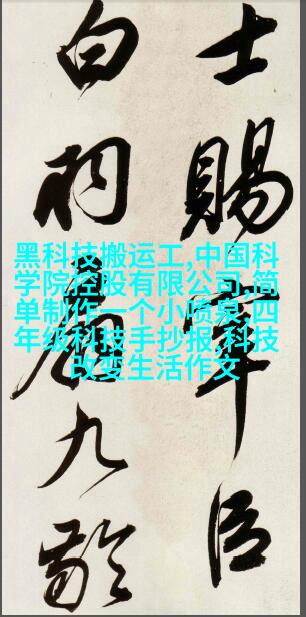 士賜宰臣
白羽扇九齡
黑科技搬运工,中国科
学院控股有限公司,简
单制作一个小喷泉,四
年级科技手抄报,科技
改变生活作文